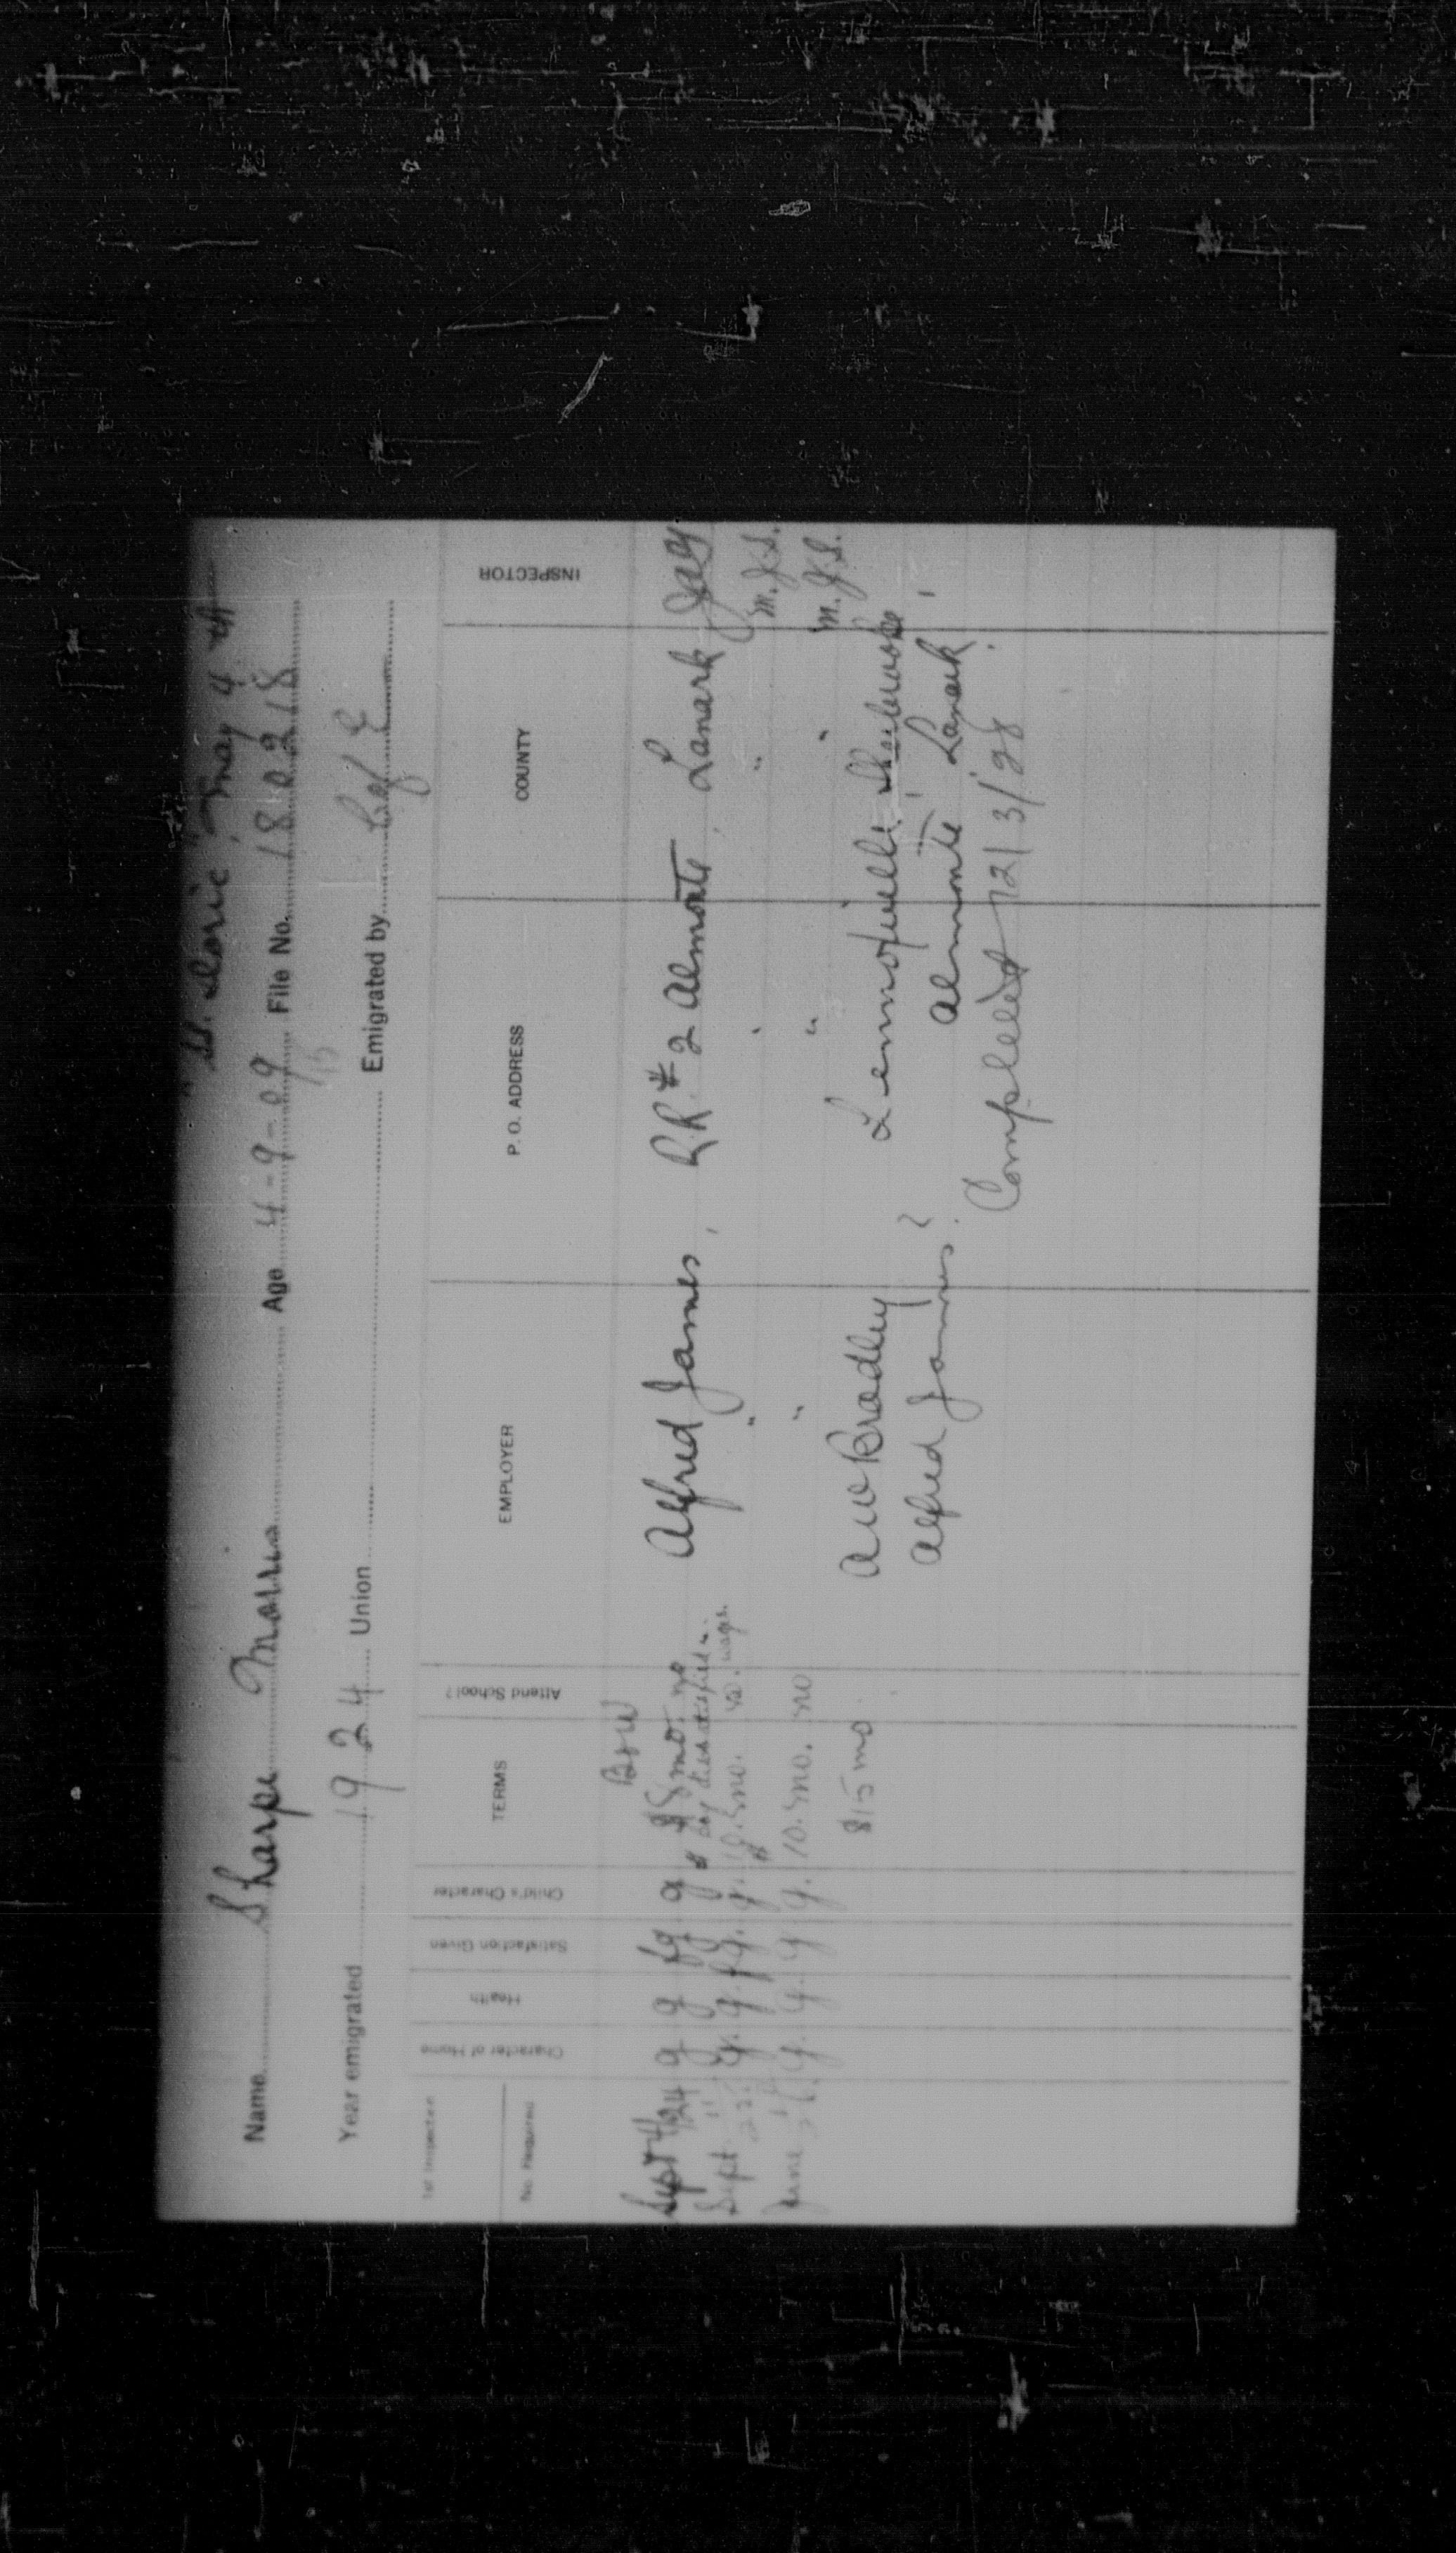 "S.S. Doric" May 4
Name Sharpe Morris Age 4-9-09 File No. 18218
15
Year emigrated 1924 Union Emigrated by C of E
1st Inspection No. Required Character of Home Health Satisfaction Given Child's Character TERMS Attend School? EMPLOYER P. O. ADDRESS COUNTY INSPECTOR
Sept 4/24 g g fg g $8 mo. no Alfred James, R.R. # 2 Almonte, Lanark
Boy dissatisfied
Sept 25 g. g. fg. g. 10. mo. no. wage. " " " M.J.S.
June g. g. g g. 10. mo. no " " " M.J.S.
$15 mo A W Bradley Lennoxville, Sherbrooke
Alfred James? Almonte, Lanark.
Completed 12/3/28